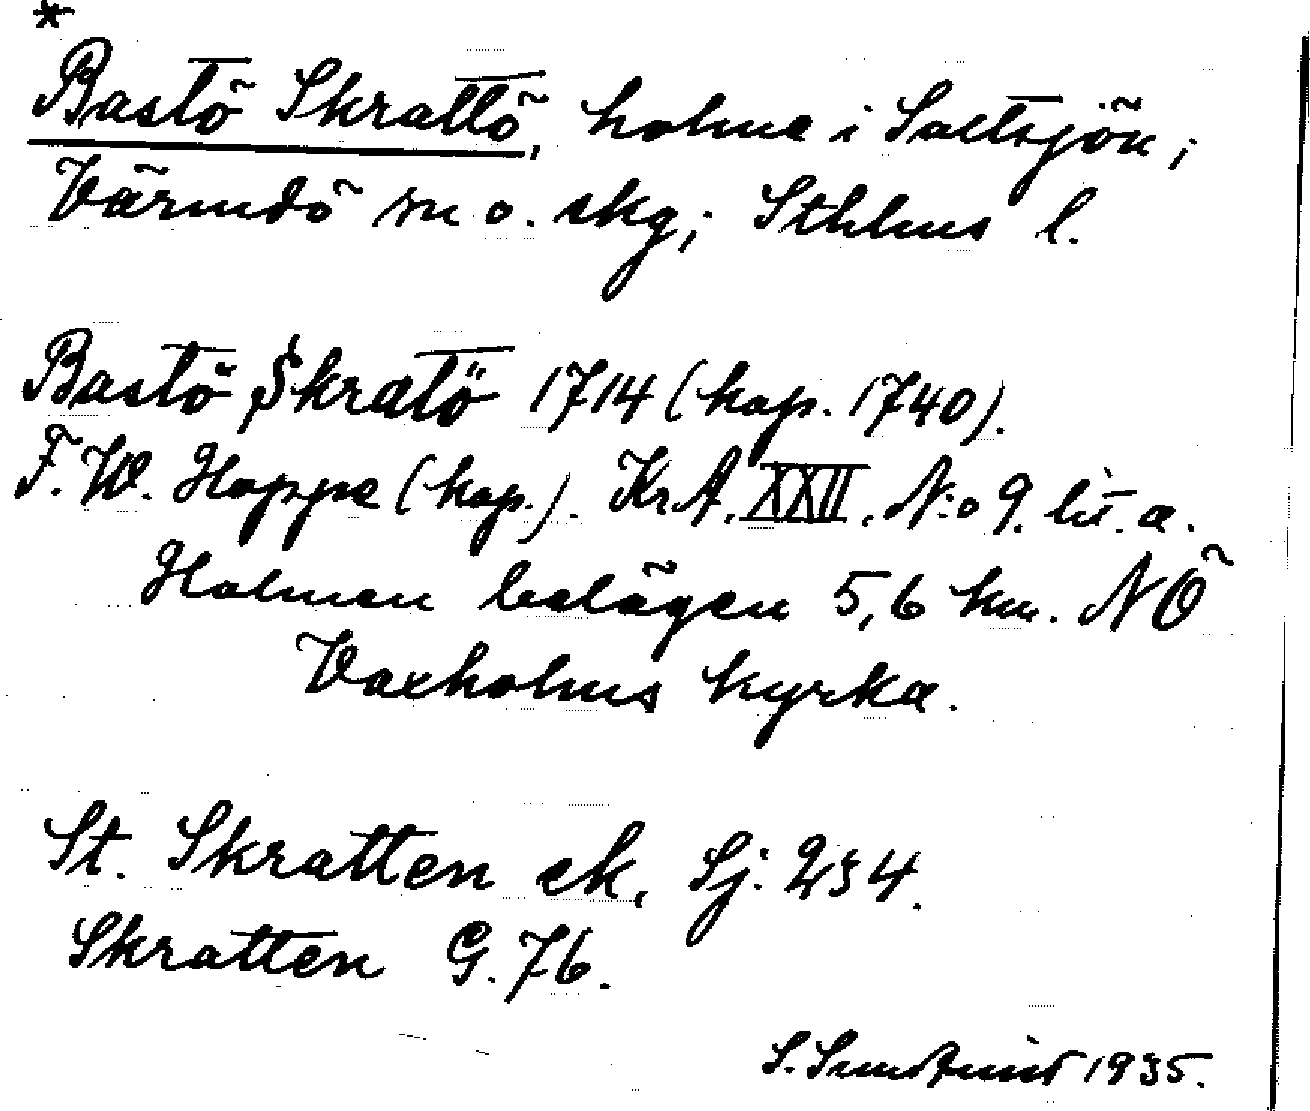 *
Bastö Skrattö, holme i Saltsjön;
Värmdö m o. skg; Sthlms l.
Bastö Skratö 1714 (kop. 1740).
F. W. Hoppe (kop.). KrA. XXII. N:o 9. lit. a.
Holmen belägen 5,6 km. NÖ
Vaxholms kyrka.
St. Skratten ek. Sj. 234.
Skratten G. 76.
S. 1935.